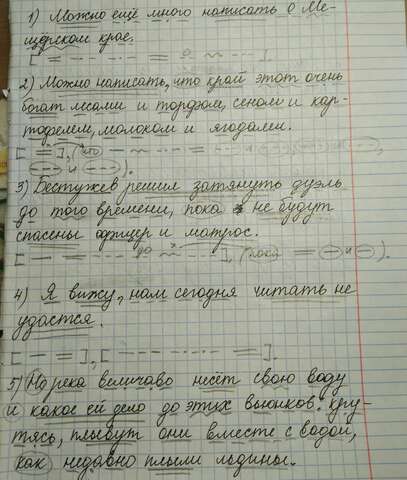 1) Можно ещё много написать о Ме-
щерском крае.
[ = –·–·– = о ~~~ ].
2) Можно написать, что край этот очень
богат лесами и торфом, сеном и кар-
тофелем, молоком и ягодами.
[ = ], (что
и ).
3) Бестужев решил затянуть дуэль
до того времени, пока не будут
спасены офицер и матрос.
до х
], (пока = и ).
4) Я вижу, нам сегодня читать не
удастся.
[ — = ], [ = ].
5) Но река величаво несёт свою воду
и какое ей дело до этих вьюнков. Кру-
тясь, плывут они вместе с водой,
как недавно плыли льдины.